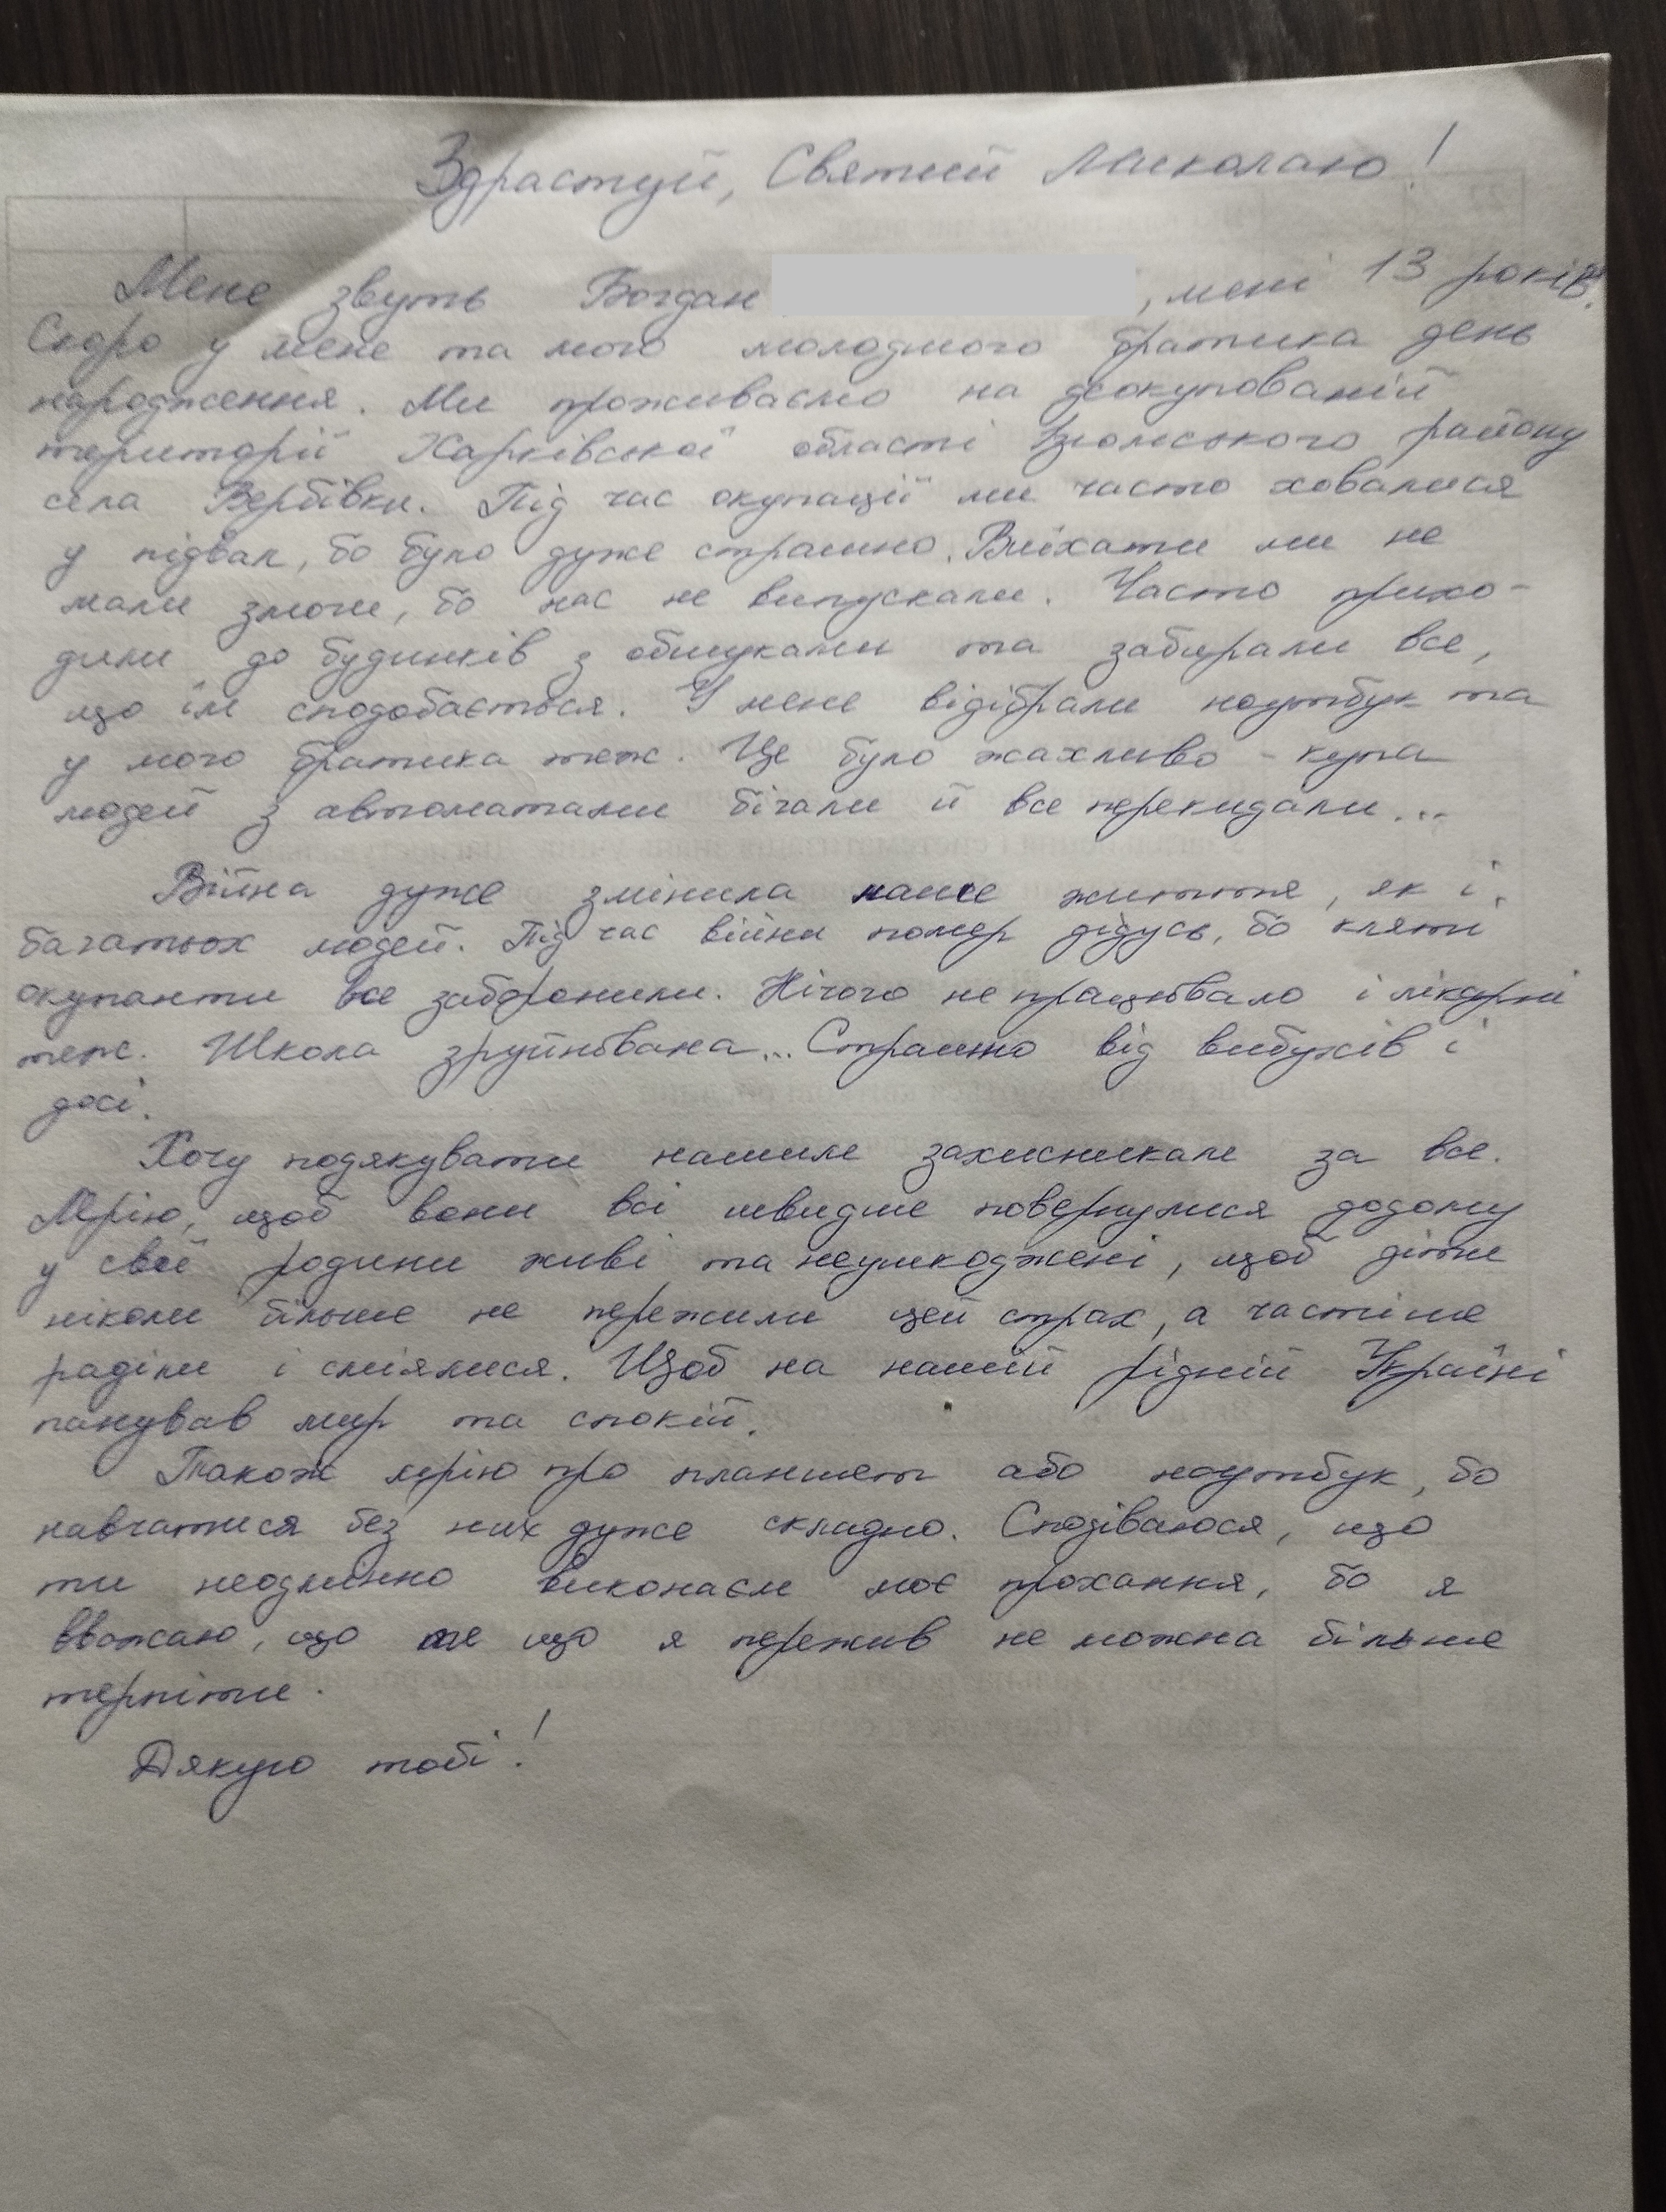 Здрастуй, Святий Миколаю!
Мене звуть Богдан , мені 13 років.
Скоро у мене та мого молодшого братика день
народження. Ми проживаємо на деокупованій
території Харківської області Ізюмського району
села Вербівки. Під час окупації ми часто ховалися
у підвал, бо було дуже страшно. Виїхати ми не
мали змоги, бо нас не випускали. Часто прихо-
дили до будинків з обшуками та забирали все,
що їм сподобається. У мене відібрали ноутбук та
у мого братика теж. Це було жахливо - купа
людей з автоматами бігали й все перекидали...
Війна дуже змінила наше життя, як і
багатьох людей. Під час війни помер дідусь, бо кляті
окупанти все заборонили. Нічого не працювало і лікарні
теж. Школа зруйнована... Страшно від вибухів і
досі.
Хочу подякувати нашим захисникам за все.
Мрію, щоб вони всі швидше повернулися додому
у свої родини живі та неушкоджені, щоб діти
ніколи більше не пережили цей страх, а частіше
раділи і сміялися. Щоб на нашій рідній Україні
панував мир та спокій.
Також мрію про планшет або ноутбук, бо
навчатися без них дуже складно. Сподіваюся, що
ти неодмінно виконаєш моє прохання, бо я
вважаю, що те що я пережив не можна більше
терпіти.
Дякую тобі!